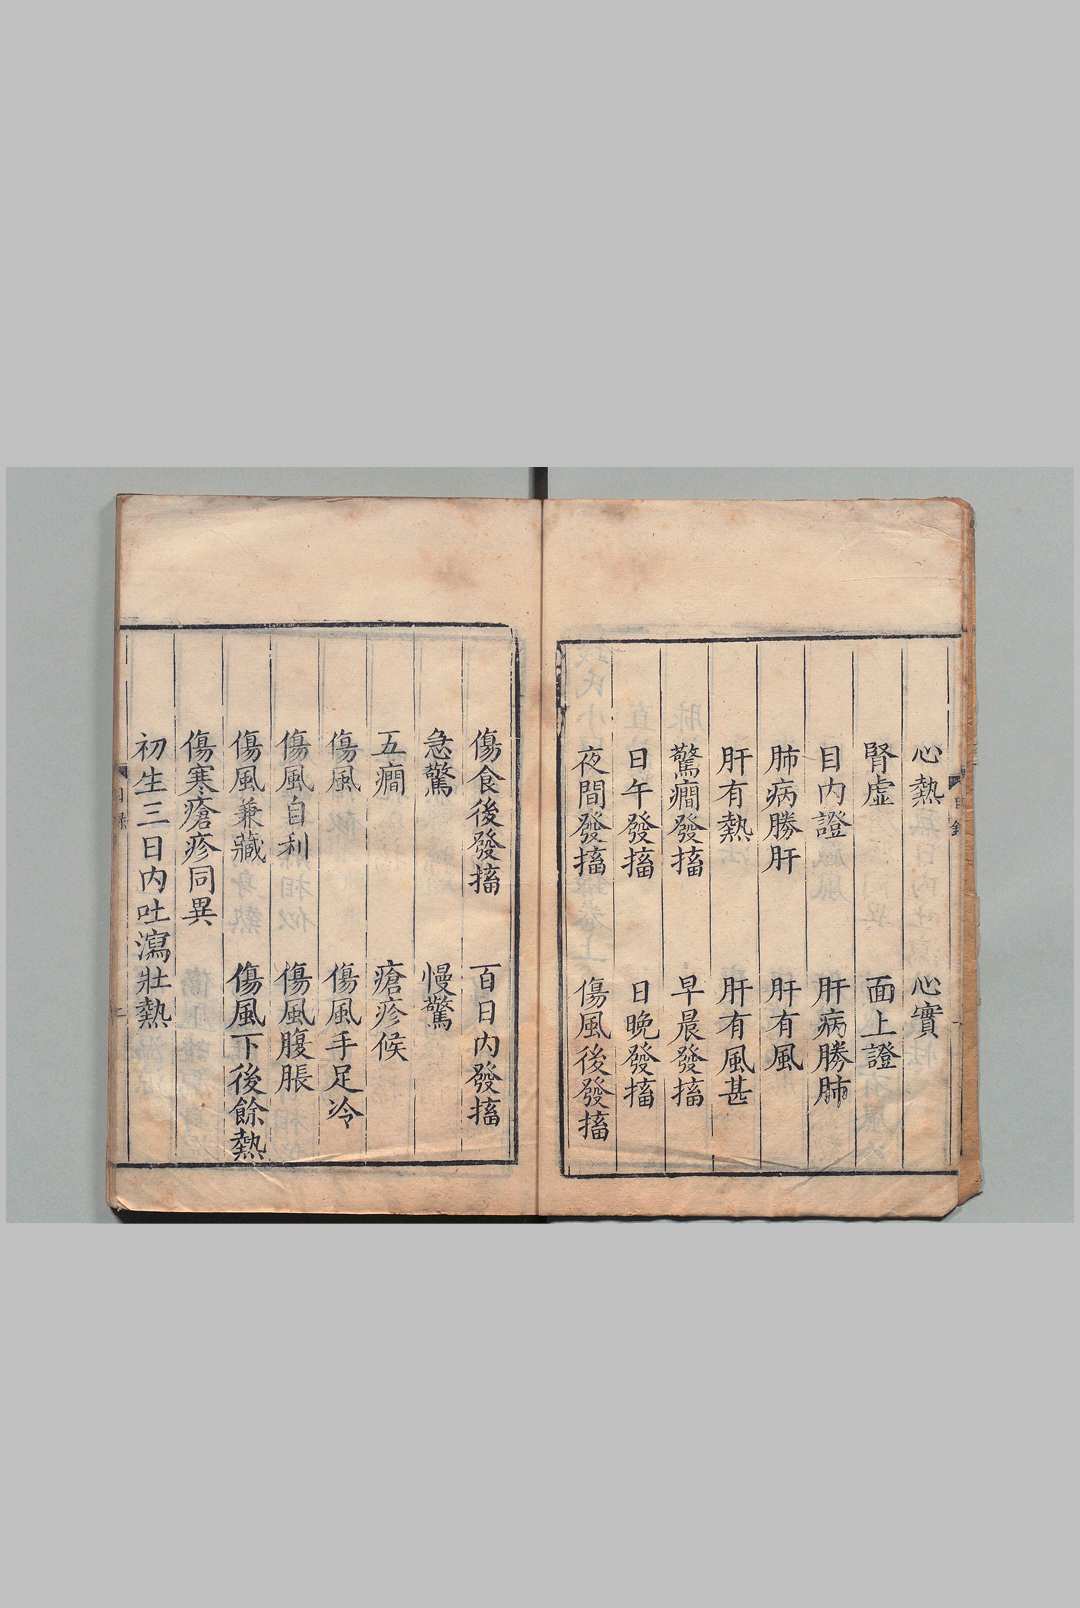 心熱　心實
腎虛　面上證
目內證　肝病勝肺
肺病勝肝　肝有風
肝有熱　肝有風甚
驚癎發搐　早晨發搐
日午發搐　日晚發搐
夜間發搐　傷風後發搐
傷食後發搐　百日內發搐
急驚　慢驚
五癎　瘡疹候
傷風　傷風手足冷
傷風自利　傷風腹脹
傷風兼藏　傷風下後餘熱
傷寒瘡疹同異
初生三日內吐瀉壯熱